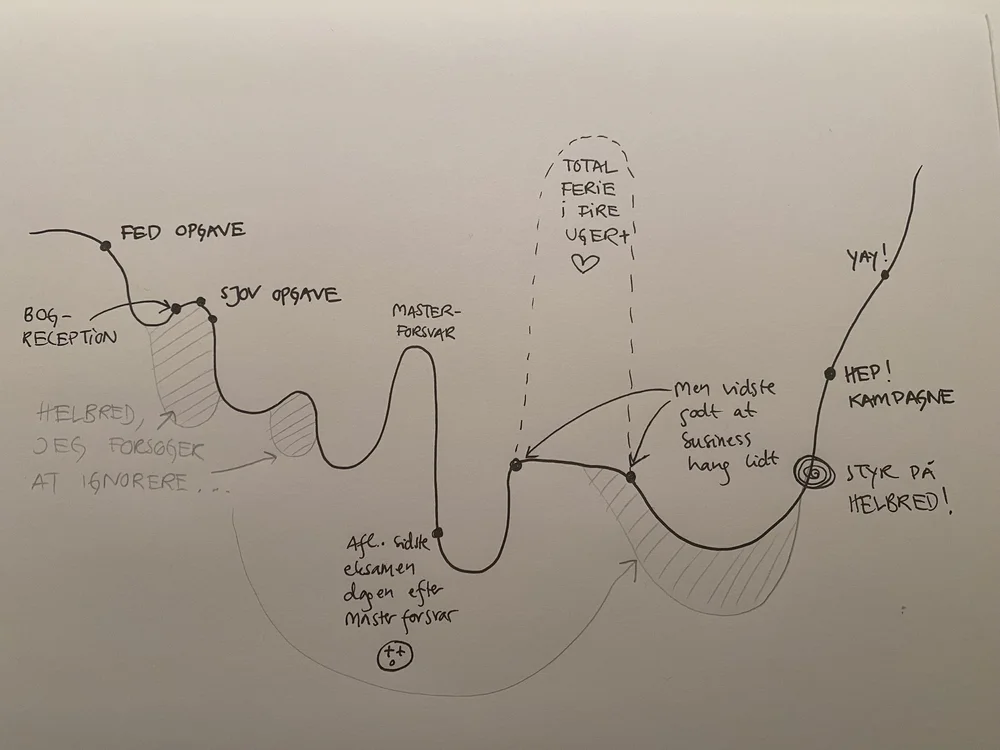 FED OPGAVE
BOG-
RECEPTION
SJOV OPGAVE
HELBRED,
JEG FORSØGER
AT IGNORERE...
MASTER-
FORSVAR
Afl.. sidste
eksamen
dagen efter
Master forsvar
TOTAL
FERIE
i FIRE
UGER+
Men vidste
godt at
business
hang lidt
YAY!
HEP!
KAMPAGNE
STYR PÅ
HELBRED!